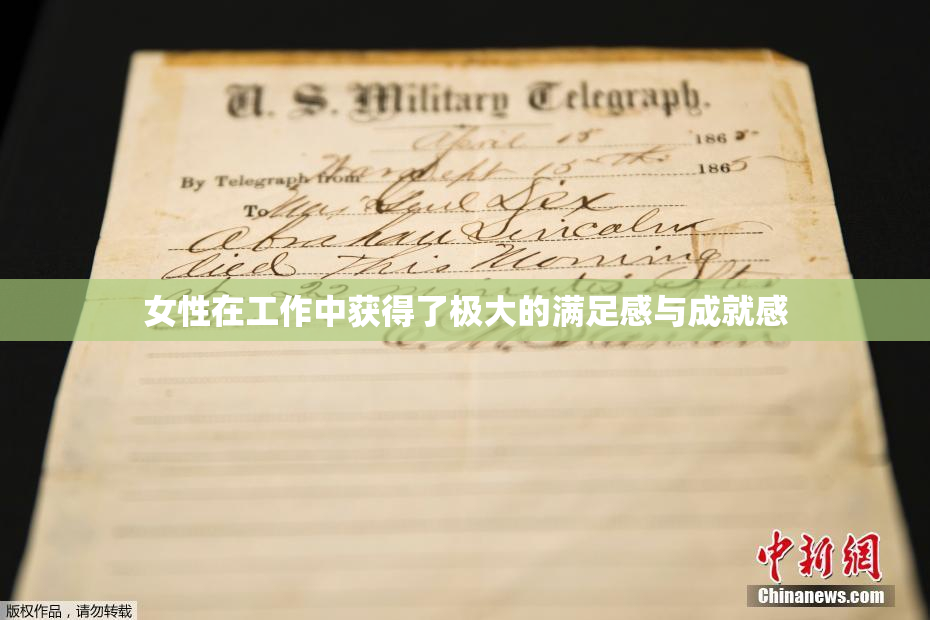 U. S. Military Telegraph.
April 15 1865
By Telegraph from War Dept 15th 1865
To Maj Genl Dix
Abraham Lincoln
died this Morning
at 22 minutes after
女性在工作中获得了极大的满足感与成就感
中新网
Chinanews.com
版权作品，请勿转载